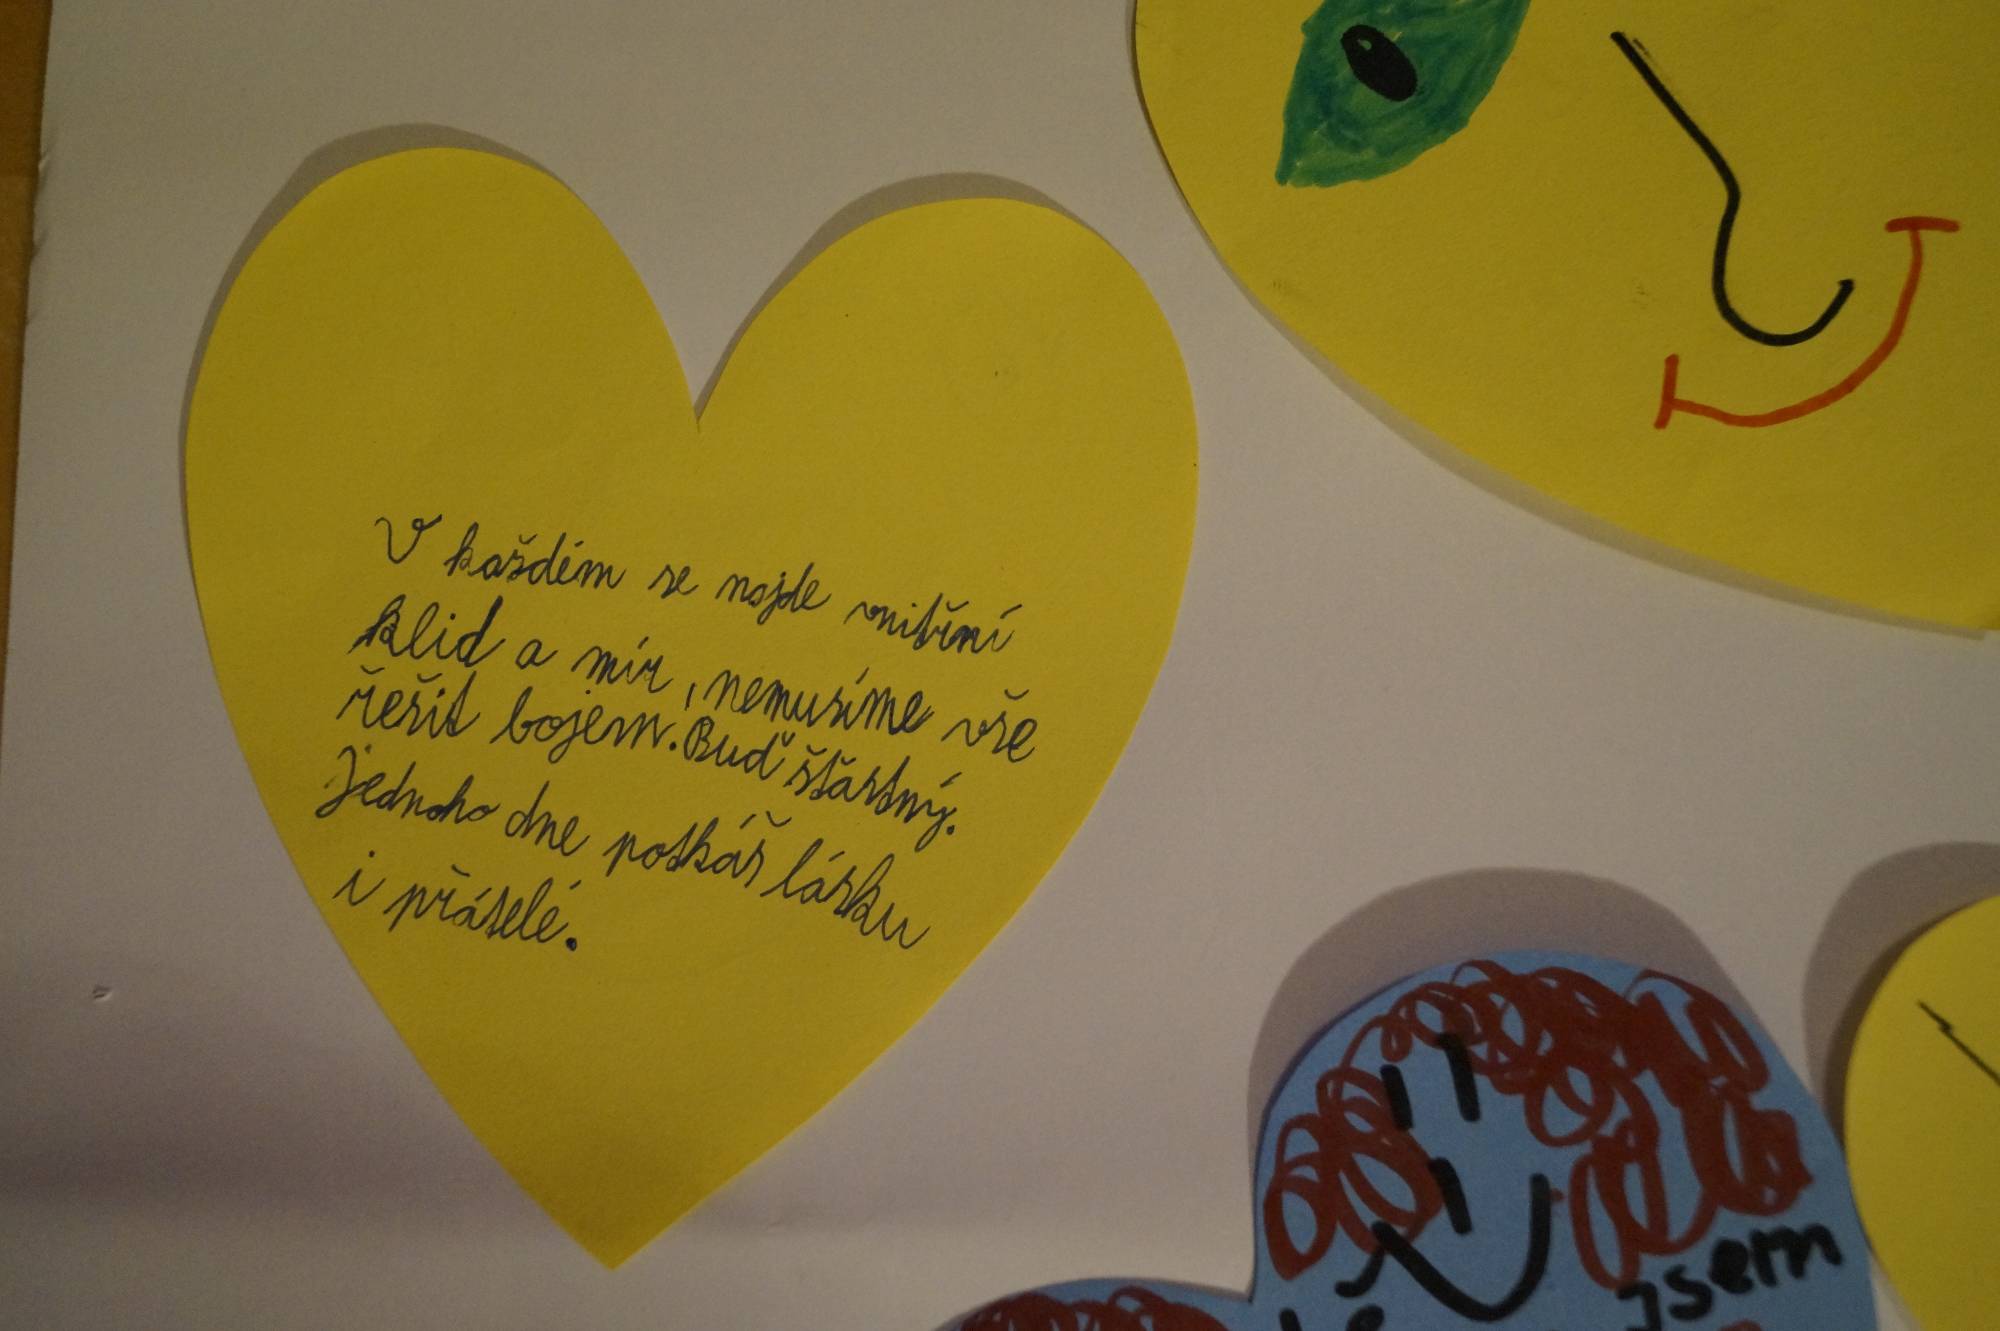 V každém se najde vnitřní
klid a mír, nemusíme vše
řešit bojem. Buď šťastný.
Jednoho dne potkáš lásku
i přátelé.
jsem